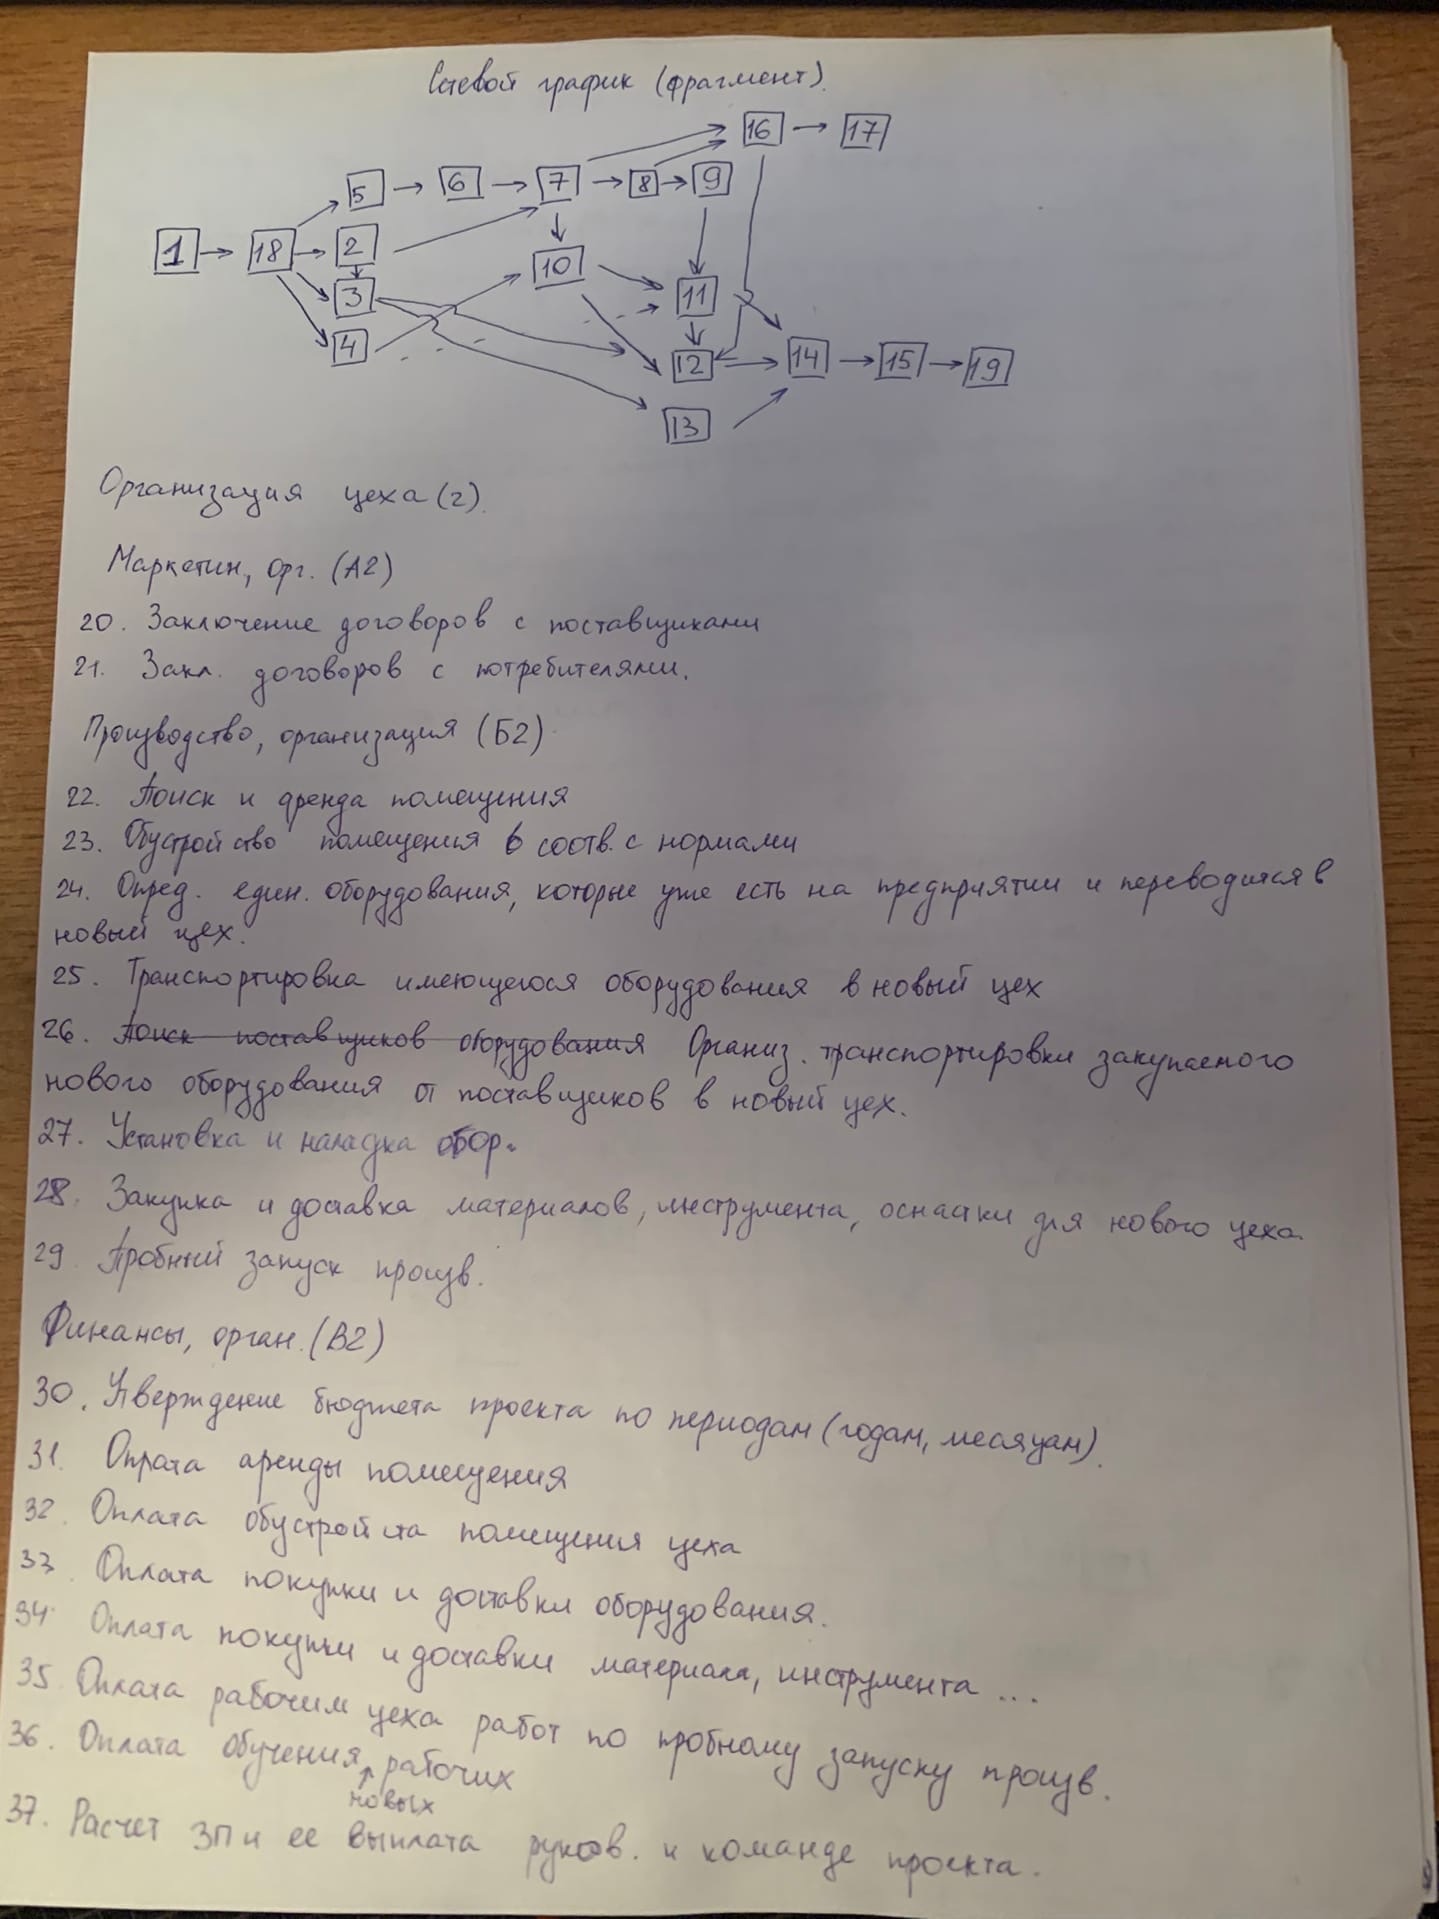 Сетевой график (фрагмент).
16 → 17
5 → 6 → 7 → 8 → 9
1 → 18 → 2
10
3
11
4
12 → 14 → 15 → 19
13
Организация цеха (2).
Маркетин, орг. (А2)
20. Заключение договоров с поставщиками
21. Закл. договоров с потребителями.
Производство, организация (Б2)
22. Поиск и аренда помещения
23. Обустройство помещения в соотв. с нормами
24. Опред. един. оборудования, которые уже есть на предприятии и переводится в
новый цех.
25. Транспортировка имеющегося оборудования в новый цех
26. Поиск поставщиков оборудования Организ. транспортировки закупаемого
нового оборудования от поставщиков в новый цех.
27. Установка и наладка обор.
28. Закупка и доставка материалов, инструмента, оснастки для нового цеха.
29. Пробный запуск произв.
Финансы, орган. (В2)
30. Утверждение бюджета проекта по периодам (годам, месяцам).
31. Оплата аренды помещения
32. Оплата обустройста помещения цеха
33. Оплата покупки и доставки оборудования.
34. Оплата покупки и доставки материала, инструмента ...
35. Оплата рабочим цеха работ по пробному запуску произв.
36. Оплата обучения рабочих
новых
37. Расчет ЗП и ее выплата руков. и команде проекта.